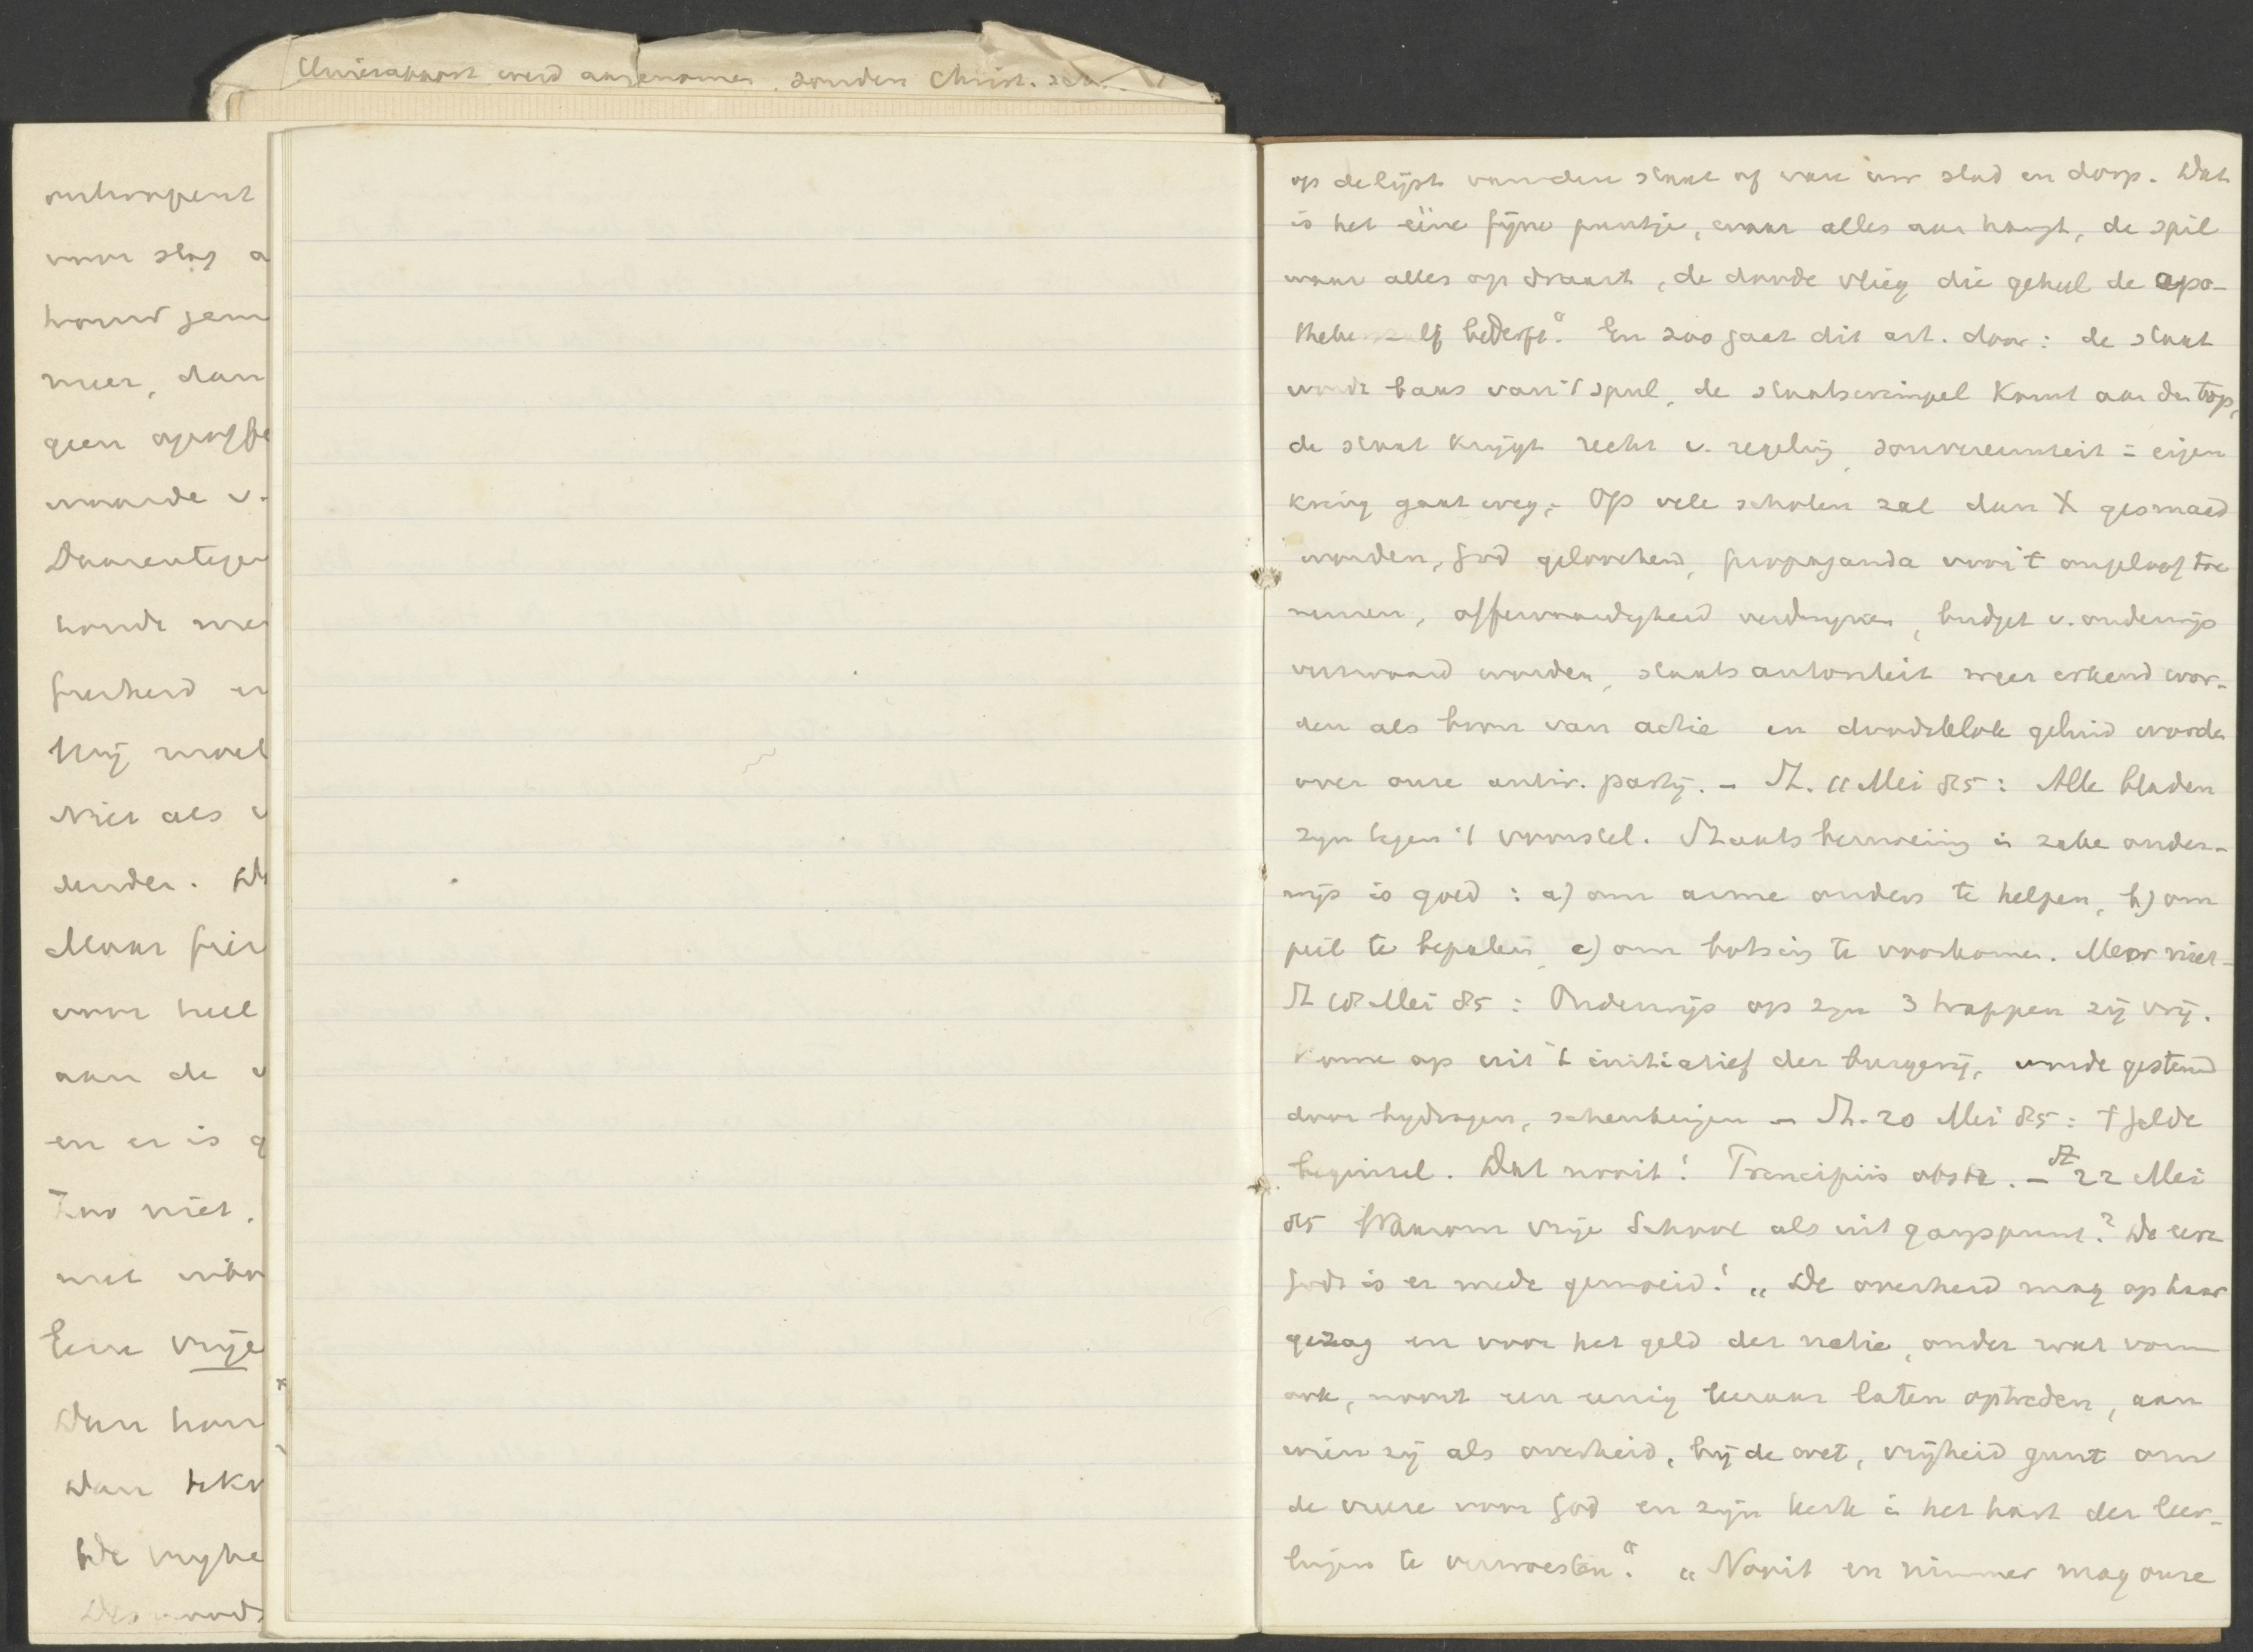 Unierapport werd aangenomen. zonder Christ. sch.
voor slag a
meer, dan
geen opoffe
waarde v.
Daarentegen
Hij moet
Niet als v
Maar
voor heel
aan de v
en er is g
Zoo niet.
met
Eene vrije
Dan
De vryhe
op de lijst van den staat of van uw stad en dorp. Dat
is het ééne fijne puntje, waar alles aan hangt, de spil
waar alles op draait, de doode vlieg die geheel de apo-
thekerszalf bederft." En zoo gaat dit art. door: de staat
wordt baas van 't spul, de staatswimpel komt aan den top,
de staat krijgt recht v. regeling, souvereiniteit i eigen
kring gaat weg. Op vele scholen zal dan X gesmaad
worden, God geloochend, propaganda voor 't ongeloof toe
nemen, offervaardigheid verdwynen, budget v. onderwijs
verzwaard worden, staatsautoriteit meer erkend wor-
den als bron van actie en doodsklok geluid worden
over onze antir. partij. – St. 11 Mei 85: Alle bladen
zyn tegen 't voorstel. Staatsbemoeiing in zake onder-
wijs is goed: a) om arme ouders te helpen, b) om
peil te bepalen, c) om botsing te voorkomen. Meer niet –
St 18 Mei 85: Onderwijs op zyn 3 trappen zij vrij.
Kome op uit 't initiatief der burgerij, worde gesteund
door bydragen, schenkingen – St. 20 Mei 85: t geldt
beginsel. Dat nooit! Principiis obsta. – St 22 Mei
85 Waarom vrije School als uitgangspunt? De eere
Gods is er mede gemoeid! „De overheid mag op haar
gezag en voor het geld der natie, onder wat vorm
ook, nooit een eenig leeraar laten optreden, aan
wien zij als overheid, bij de wet, vrijheid gunt om
de vreeze voor God en zijn kerk in het hart der leer-
lingen te verwoesten." „Nooit en nimmer mag onze